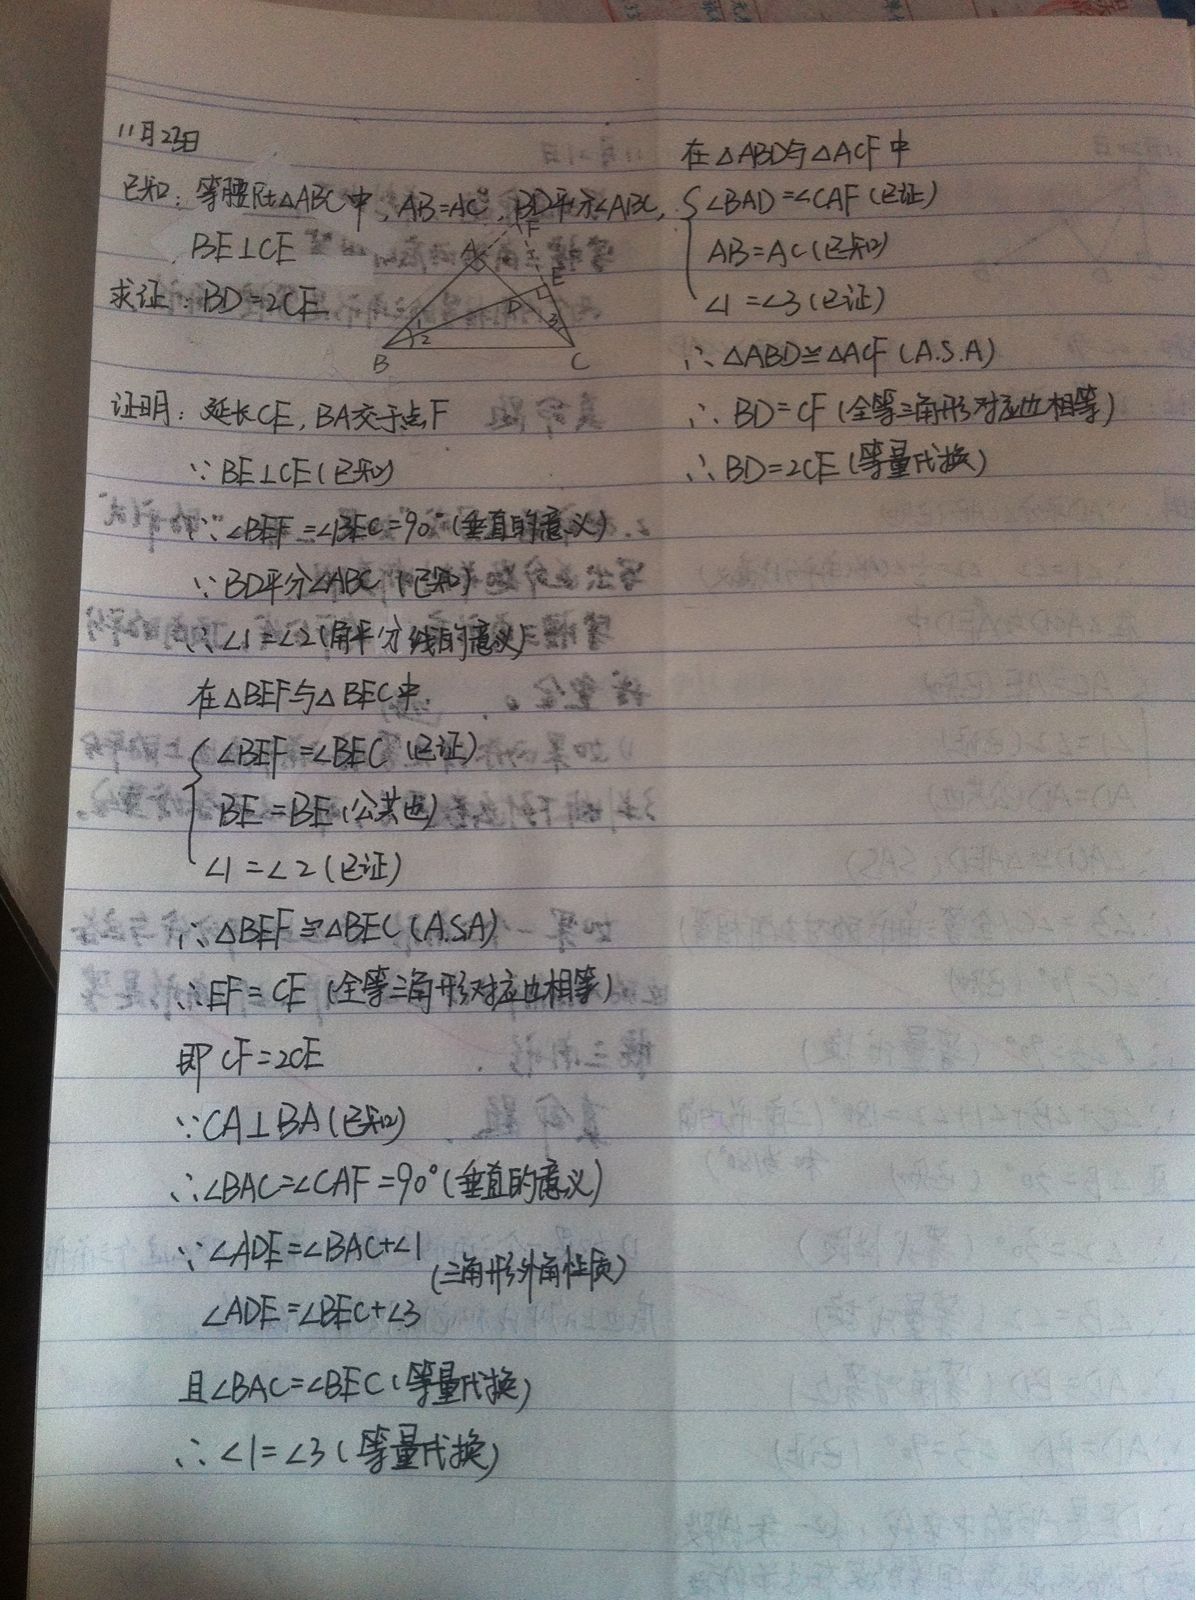 11月23日
已知：等腰Rt△ABC中，AB=AC，BD平分∠ABC，
BE⊥CE
求证：BD=2CE
A
F
E
D
1
2
3
B
C
证明：延长CE，BA交于点F
∵BE⊥CE（已知）
∴∠BEF=∠BEC=90°（垂直的意义）
∵BD平分∠ABC（已知）
∴∠1=∠2（角平分线的意义）
在△BEF与△BEC中
∠BEF=∠BEC（已证）
BE=BE（公共边）
∠1=∠2（已证）
∴△BEF≌△BEC（A.S.A）
∴EF=CE（全等三角形对应边相等）
即CF=2CE
∵CA⊥BA（已知）
∴∠BAC=∠CAF=90°（垂直的意义）
∵∠ADE=∠BAC+∠1
（三角形外角性质）
∠ADE=∠BEC+∠3
且∠BAC=∠BEC（等量代换）
∴∠1=∠3（等量代换）
在△ABD与△ACF中
∠BAD=∠CAF（已证）
AB=AC（已知）
∠1=∠3（已证）
∴△ABD≌△ACF（A.S.A）
∴BD=CF（全等三角形对应边相等）
∴BD=2CE（等量代换）